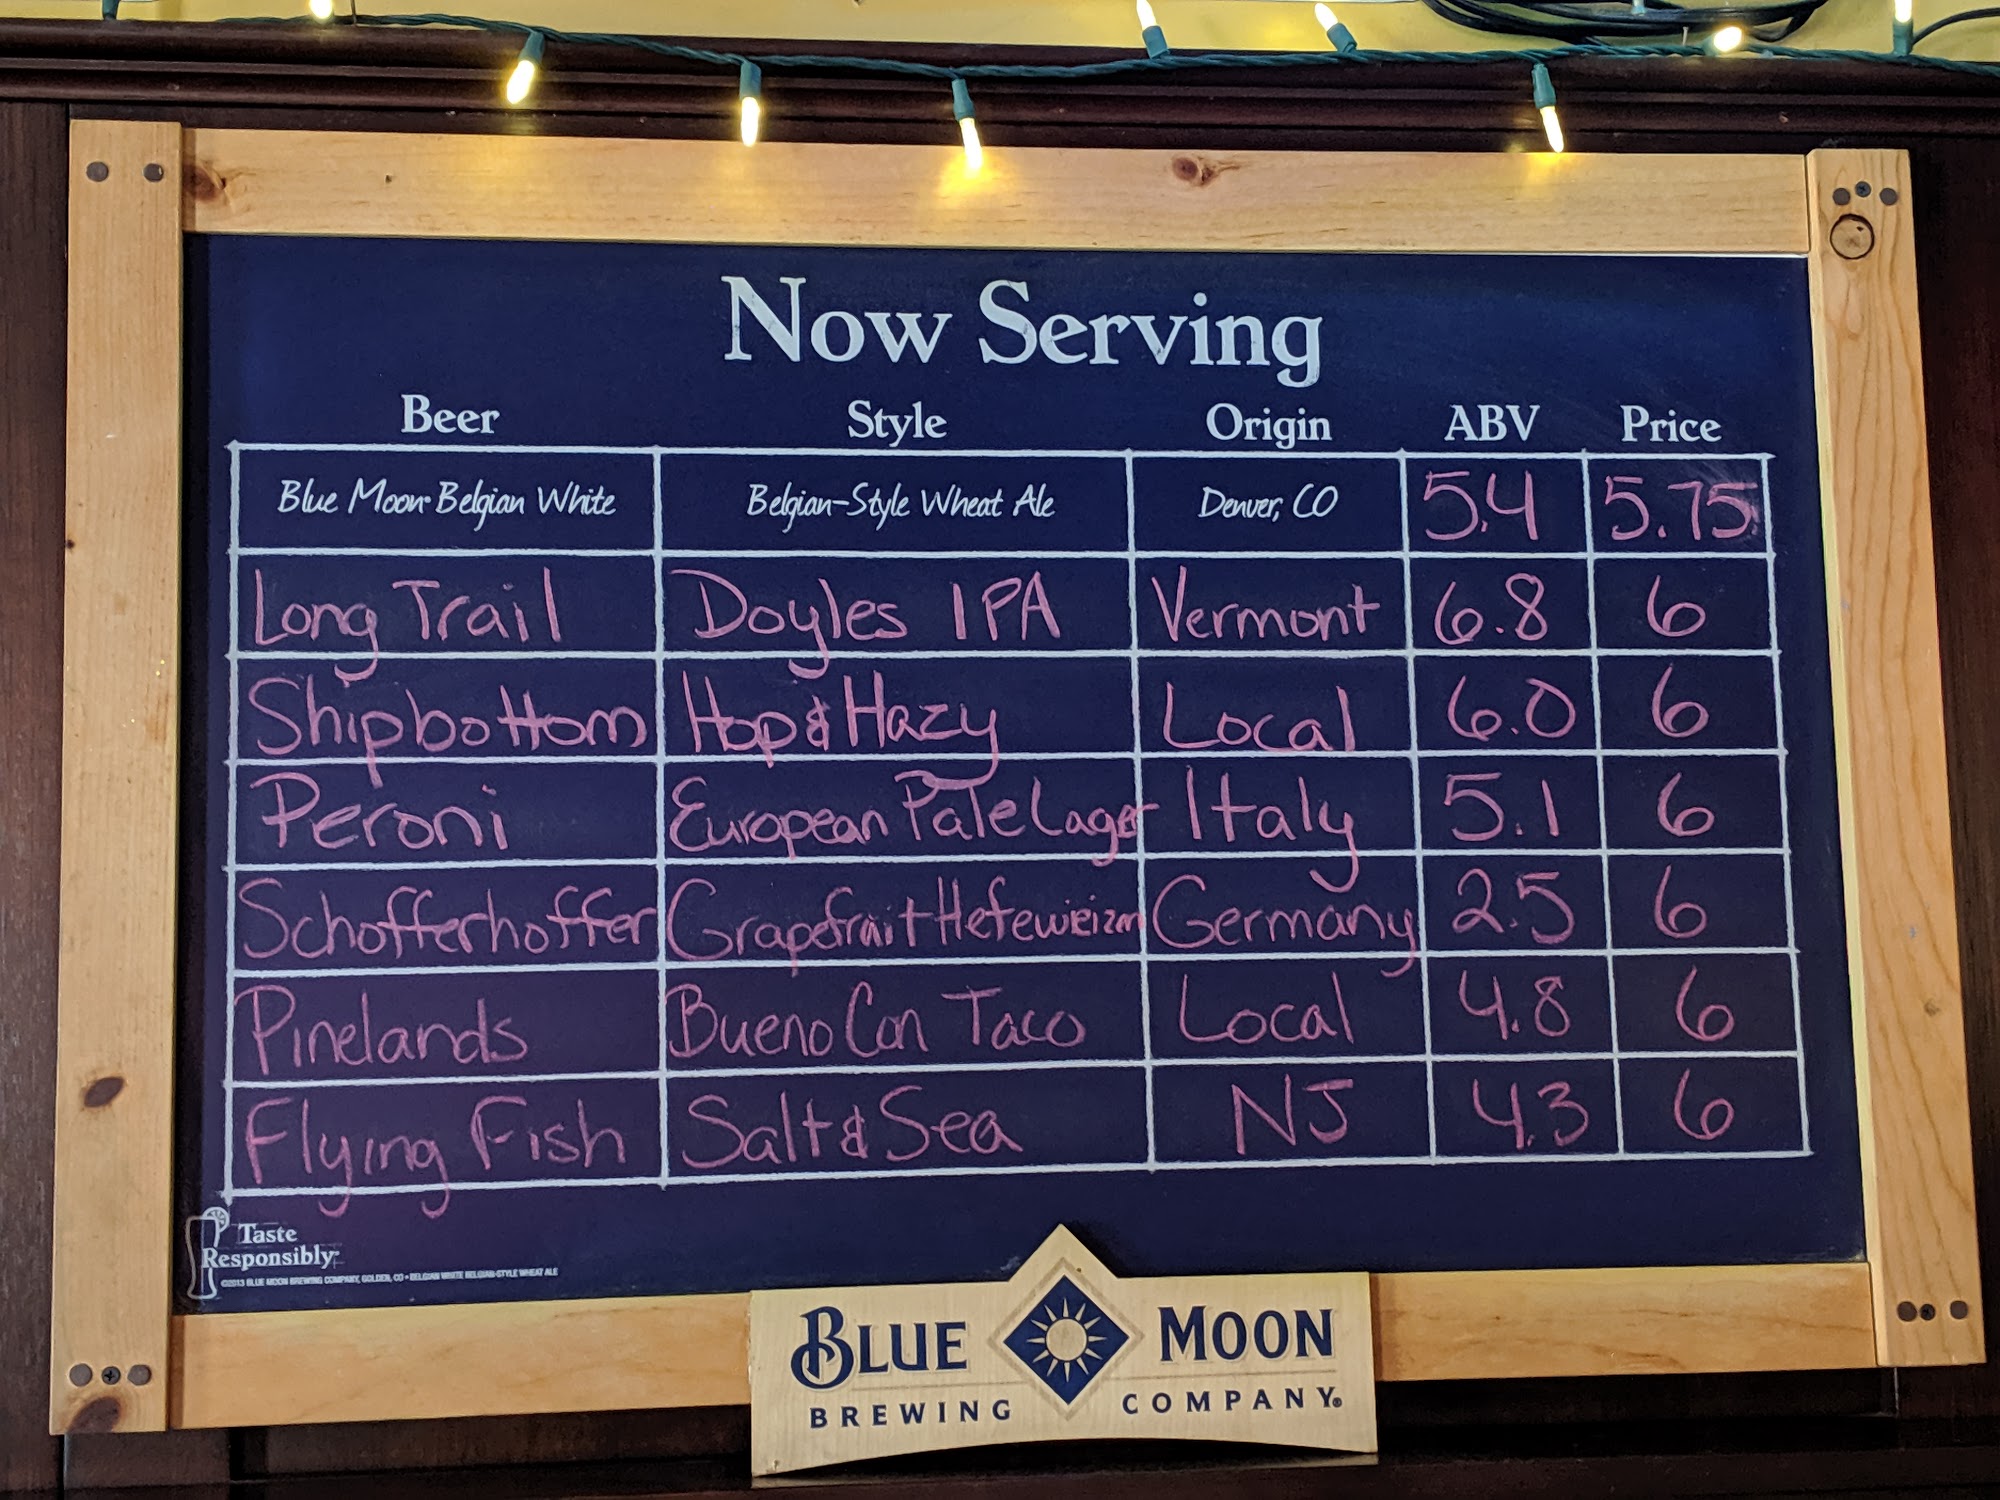 Now Serving
Beer Style Origin ABV Price
Blue Moon Belgian White Belgian-Style Wheat Ale Denver, CO 5.4 5.75
Long Trail Doyles IPA Vermont 6.8 6
Shipbottom Hop & Hazy Local 6.0 6
Peroni European Pale Lager Italy 5.1 6
Schofferhoffer Grapefruit Hefewieizen Germany 2.5 6
Pinelands Bueno Con Taco Local 4.8 6
Flying Fish Salt & Sea NJ 4.3 6
Taste
Responsibly
©2013 BLUE MOON BREWING COMPANY, GOLDEN, CO • BELGIAN WHITE BELGIAN-STYLE WHEAT ALE
BLUE MOON
BREWING COMPANY®